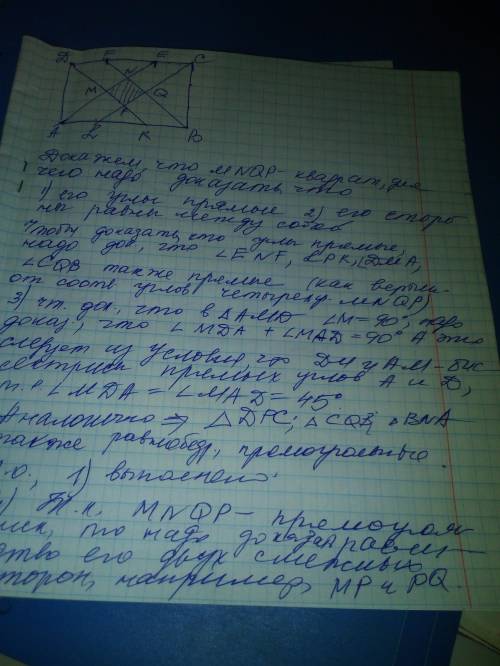 D F E C
N
M Q
P
A L K B
Докажем, что MNQP - квадрат, для
чего надо доказать что
1) его углы прямые 2) его сторо-
ны равны между собой
Чтобы доказать, что углы прямые,
надо док, что ∠ENF, ∠LPK, ∠DMA,
∠CQB также прямые (как вертик.
от соотв углов четыреху MNQP)
3) чт. док, что в ΔAMD ∠M = 90°, надо
доказ, что ∠MDA + ∠MAD = 90° А это
следует из условия что DM и AM - бис-
сектрисы прямых углов A и D,
т. е ∠MDA = ∠MAD = 45°
Аналогично ⇒ ΔDPC; ΔCQB, ΔBNA
также равнобедр, прямоугольные.
.о, 1) выполнено.
) Т.к. MNQP - прямоуголь-
ник, то надо доказа равен-
ство его двух смежных
сторон, например, MP и PQ.